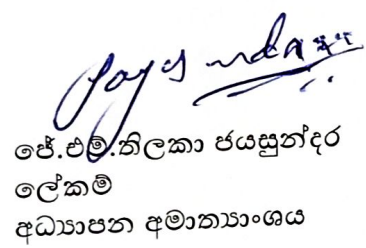 ජේ.එම්.තිලකා ජයසුන්දර
ලේකම්
අධ්‍යාපන අමාත්‍යාංශය